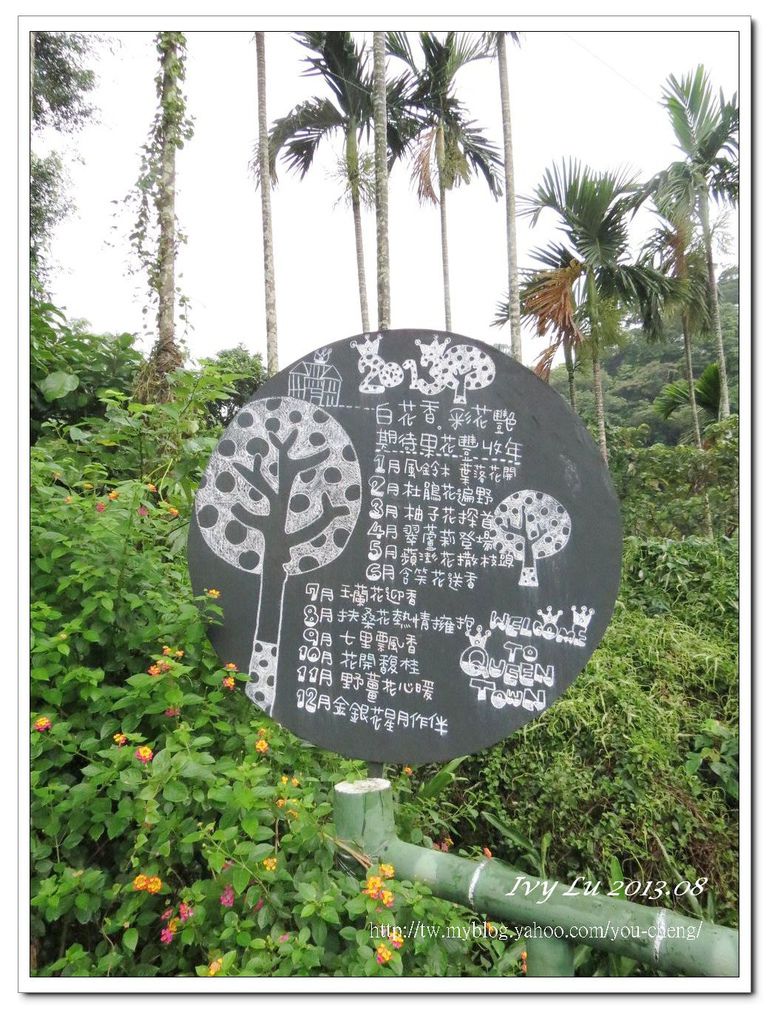 2013
白花香。彩花艷
期待果花豐收年
1月風鈴木 葉落花開
2月杜鵑花遍野
3月柚子花探首
4月翠蘆莉登場
5月蘋澎花撒枝頭
6月含笑花送香
7月玉蘭花迎香
8月扶桑花熱情擁抱
9月七里飄香
10月花開馥桂
11月野薑花心暖
12月金銀花星月作伴
WELCOME
TO
QUEEN
TOWN
Ivy Lu 2013.08
http://tw.myblog.yahoo.com/you-cheng/